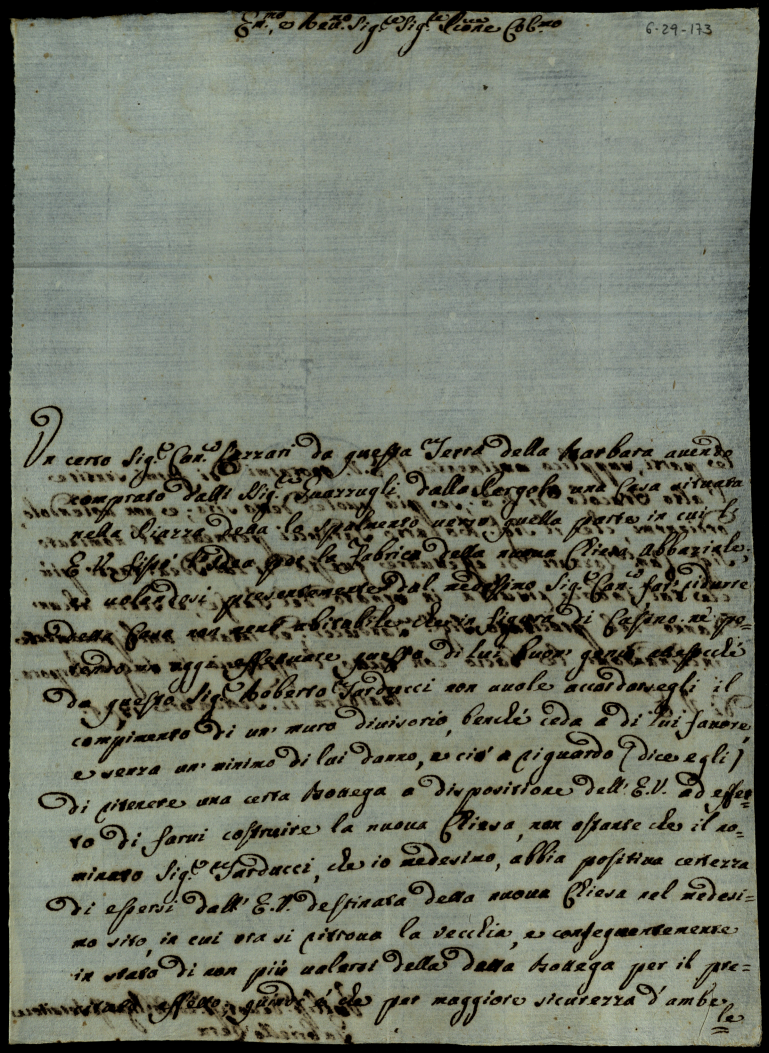 Em.mo, e Rev.mo Sig.re Sig.re P.rone Col.mo
6-29-173
Un certo Sig.r Con.e Ferrari da questa Terra della Barbara avendo
comprato dalli Sig.ri Guarrugli dalla Pergola una Casa situata
nella Piazza della lo verso quella parte in cui l'
E.V. l'Idea per la Fabrica della nuova Chiesa Abbaziale
e volendosi presentemente dal medesimo Sig.r Con.e far ridurre
detta Casa non abitabile in figura di Casino nè po-
tendo in oggi effettuare questo di lui buon genio attesocchè
da questo Sig.r Roberto Tarducci non vuole accordarsegli il
compimento di un' muro divisorio, benchè ceda a di lui favore,
e senza un' minimo di lui danno, e ciò a riguardo (dice egli)
di ritenere una certa Bottega a disposizione dell' E.V. ad effet=
to di farvi costruire la nuova Chiesa, non ostante che il no=
minato Sig.re Tarducci, che io medesimo, abbia positiva certezza
di essersi dall' E.V. destinata detta nuova Chiesa nel medesi=
mo sito, in cui ora si ritrova la vecchia, e conseguentemente
in stato di non più valersi della detta Bottega per il pre=
effetto; quindi è che per maggiore sicurezza d'ambe
le